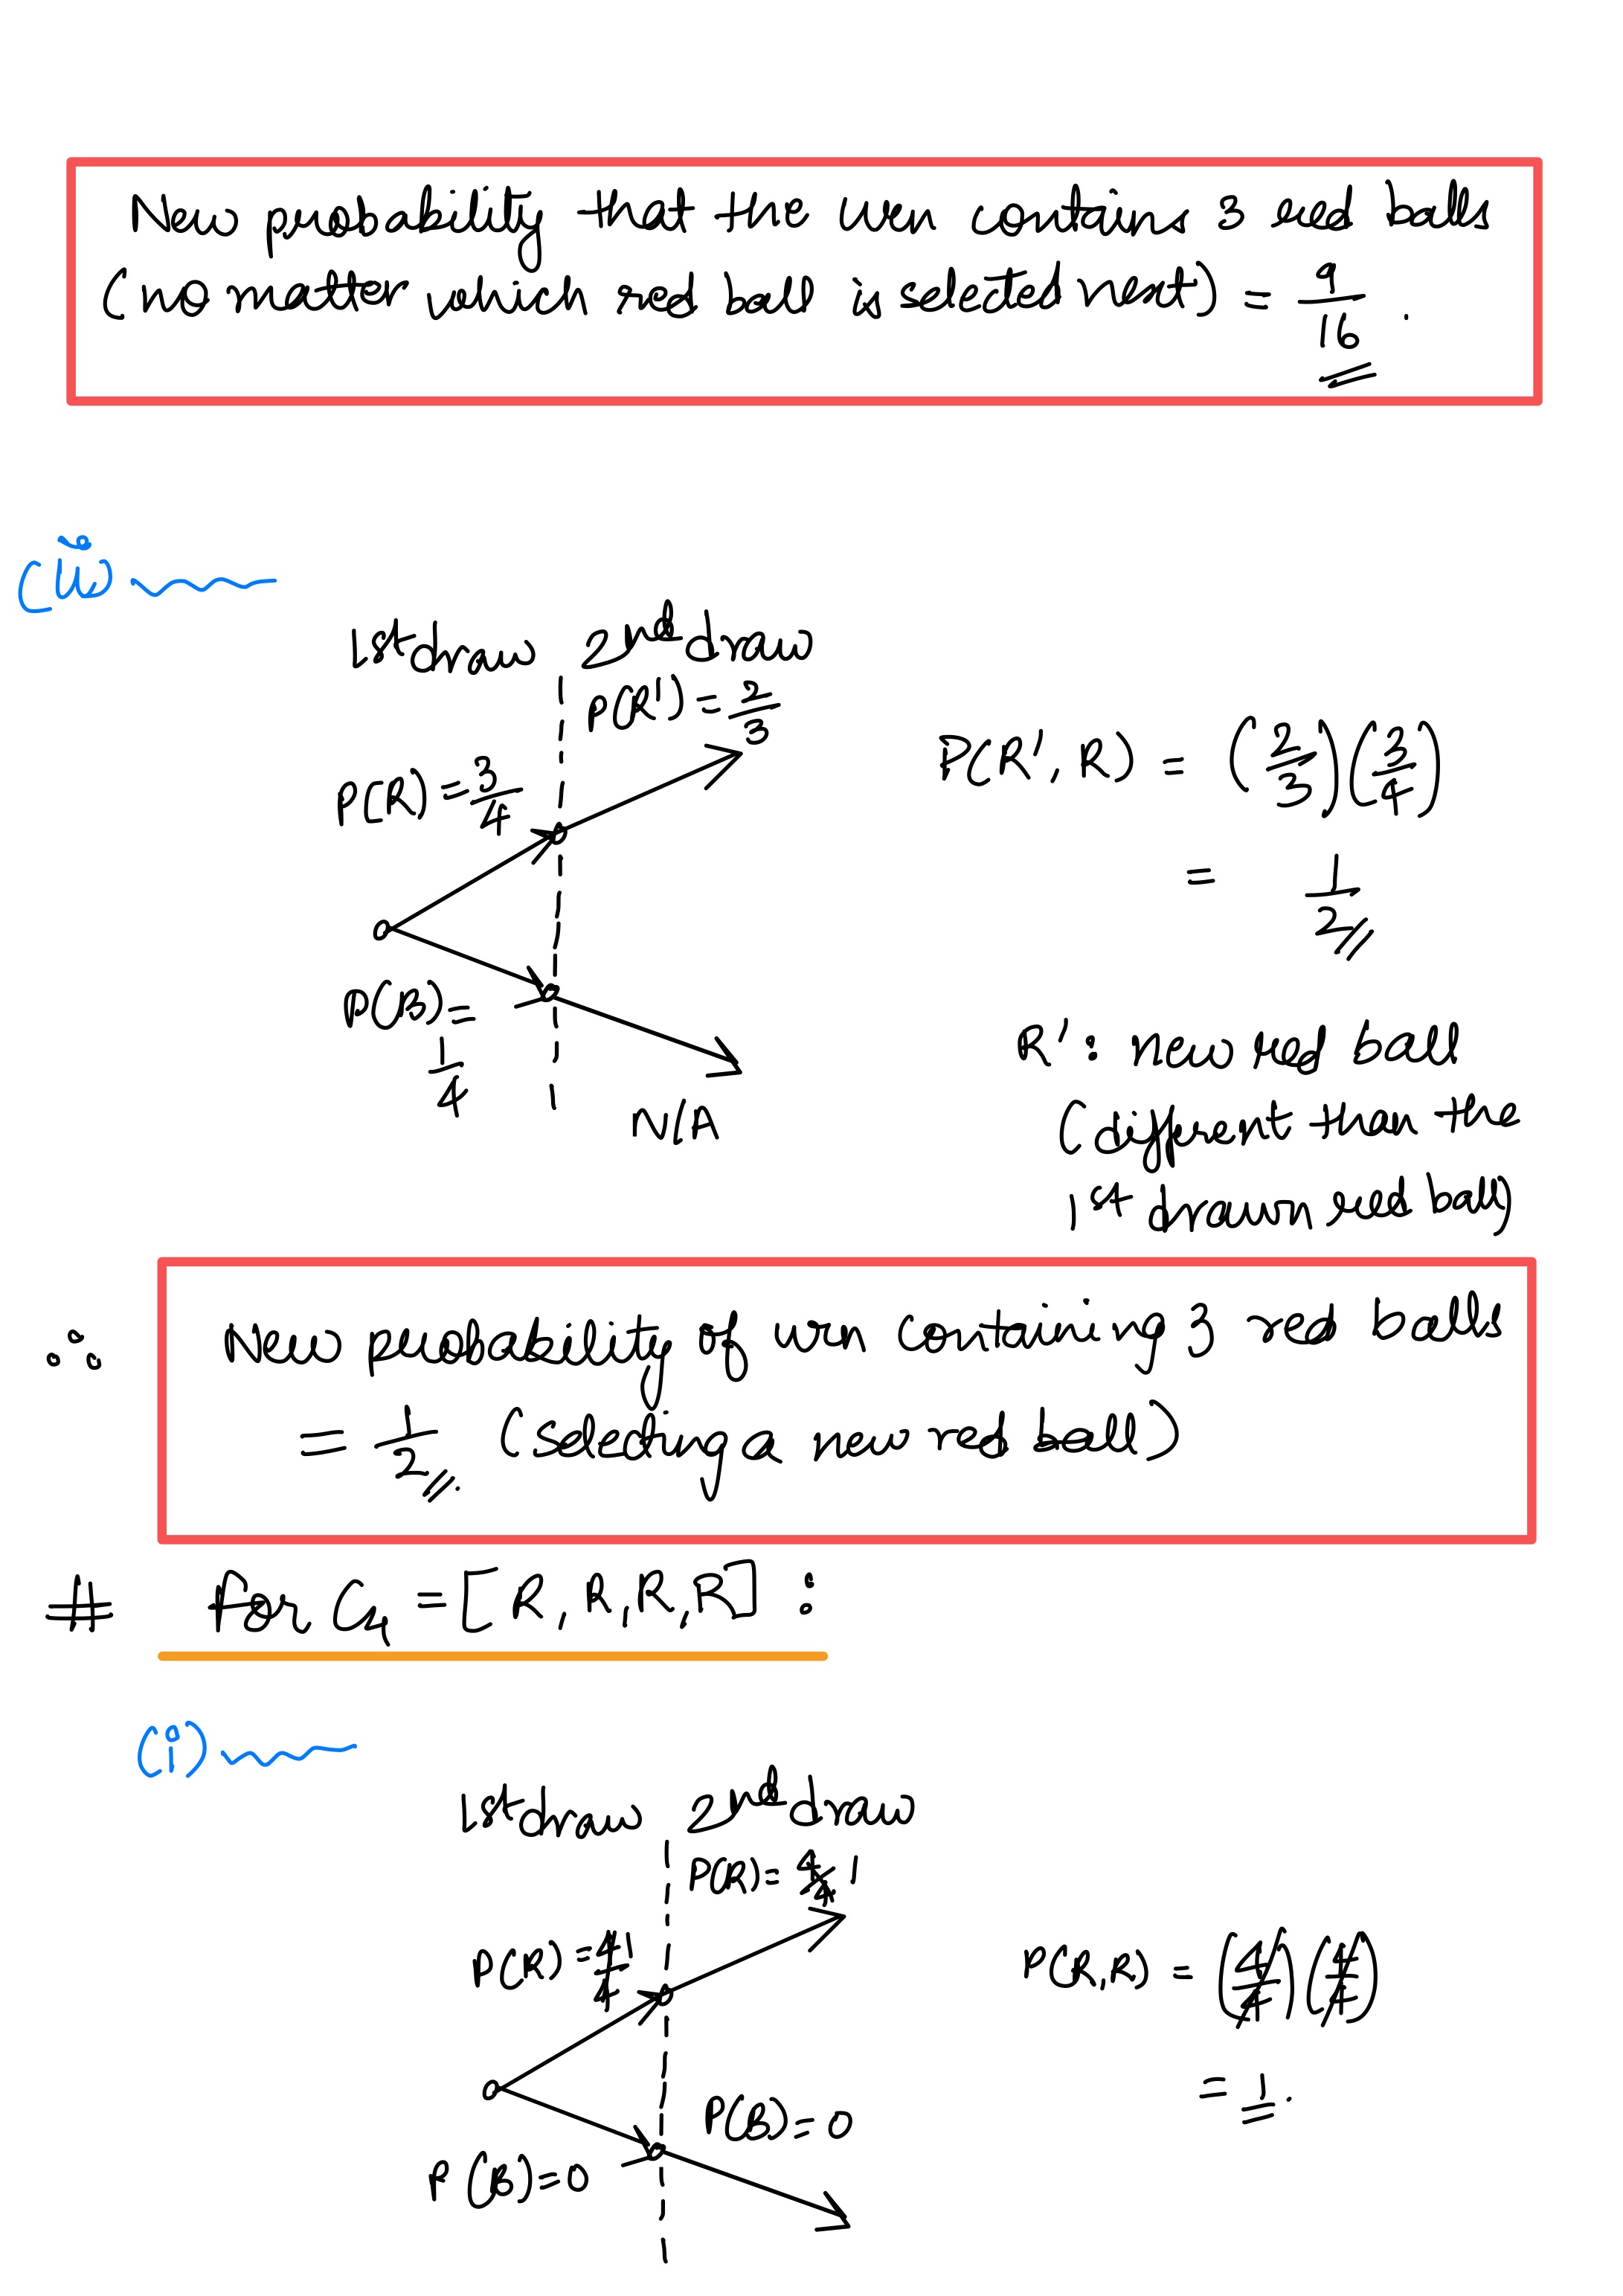 New probability that the urn contains 3 red balls
(no matter which red ball is selected next) = 9/16 .
(ii)
1st draw 2nd draw
P(R') = 2/3
P(R) = 3/4
P(R', R) = (2/3)(3/4)
= 1/2
P(B) = 1/4
N/A
R' : new red ball
(different than the
1st drawn red ball)
∴ New probability of urn containing 3 red balls
= 1/2 (selecting a new red ball)
# for C4 = [R, R, R, R] :
(i)
1st draw 2nd draw
P(R) = 4/4 1
P(R) = 4/4 1
P(R,R) = (4/4)(4/4)
= 1.
P(B) = 0
P(B) = 0